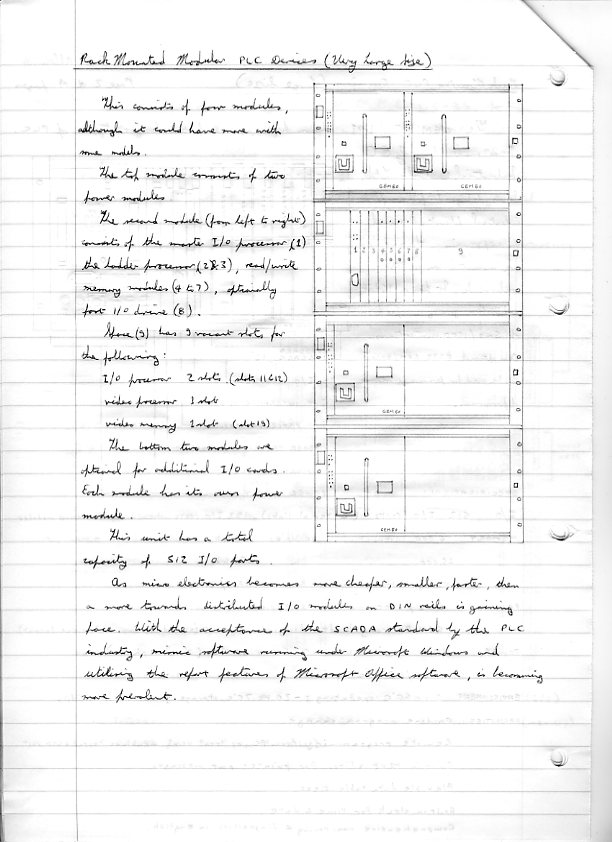 Rack Mounted Modular PLC Devices (Very Large Size)
This consists of four modules,
although it could have more with
some models.
The top module consists of two
power modules
The second module (from left to right)
consists of the master I/O processor (1)
the ladder processor (2&3), read/write
memory modules (4 to 7), optionally
fast I/O drive (8).
Space (9) has 9 vacant slots for
the following:
I/O processor 2 slots (slots 11&12)
video processor 1 slot
video memory 1 slot (slot 13)
The bottom two modules are
optional for additional I/O cards.
Each module has its own power
module.
This unit has a total
capacity of 512 I/O ports.
As micro electronics becomes more cheaper, smaller, faster, then
a move towards distributed I/O modules on DIN rails is gaining
pace. With the acceptance of the SCADA standard by the PLC
industry, mimic software running under Microsoft Windows and
utilising the report features of Microsoft Office software, is becoming
more prevalent.
GEM80 GEM80
1 2 3 4 5 6 7 8 9
GEM80
GEM80